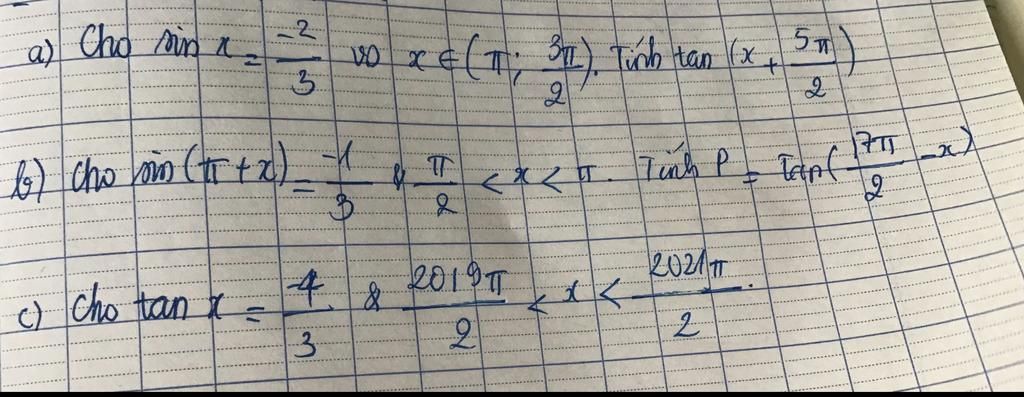 a) Cho sin x = -2/3 và x ∈ (π; 3π/2). Tính tan (x + 5π/2)
b) Cho sin (π + x) = -1/3 & π/2 < x < π. Tính P = tan (17π/2 - x)
c) Cho tan x = 4/3 & 2019π/2 < x < 2021π/2.